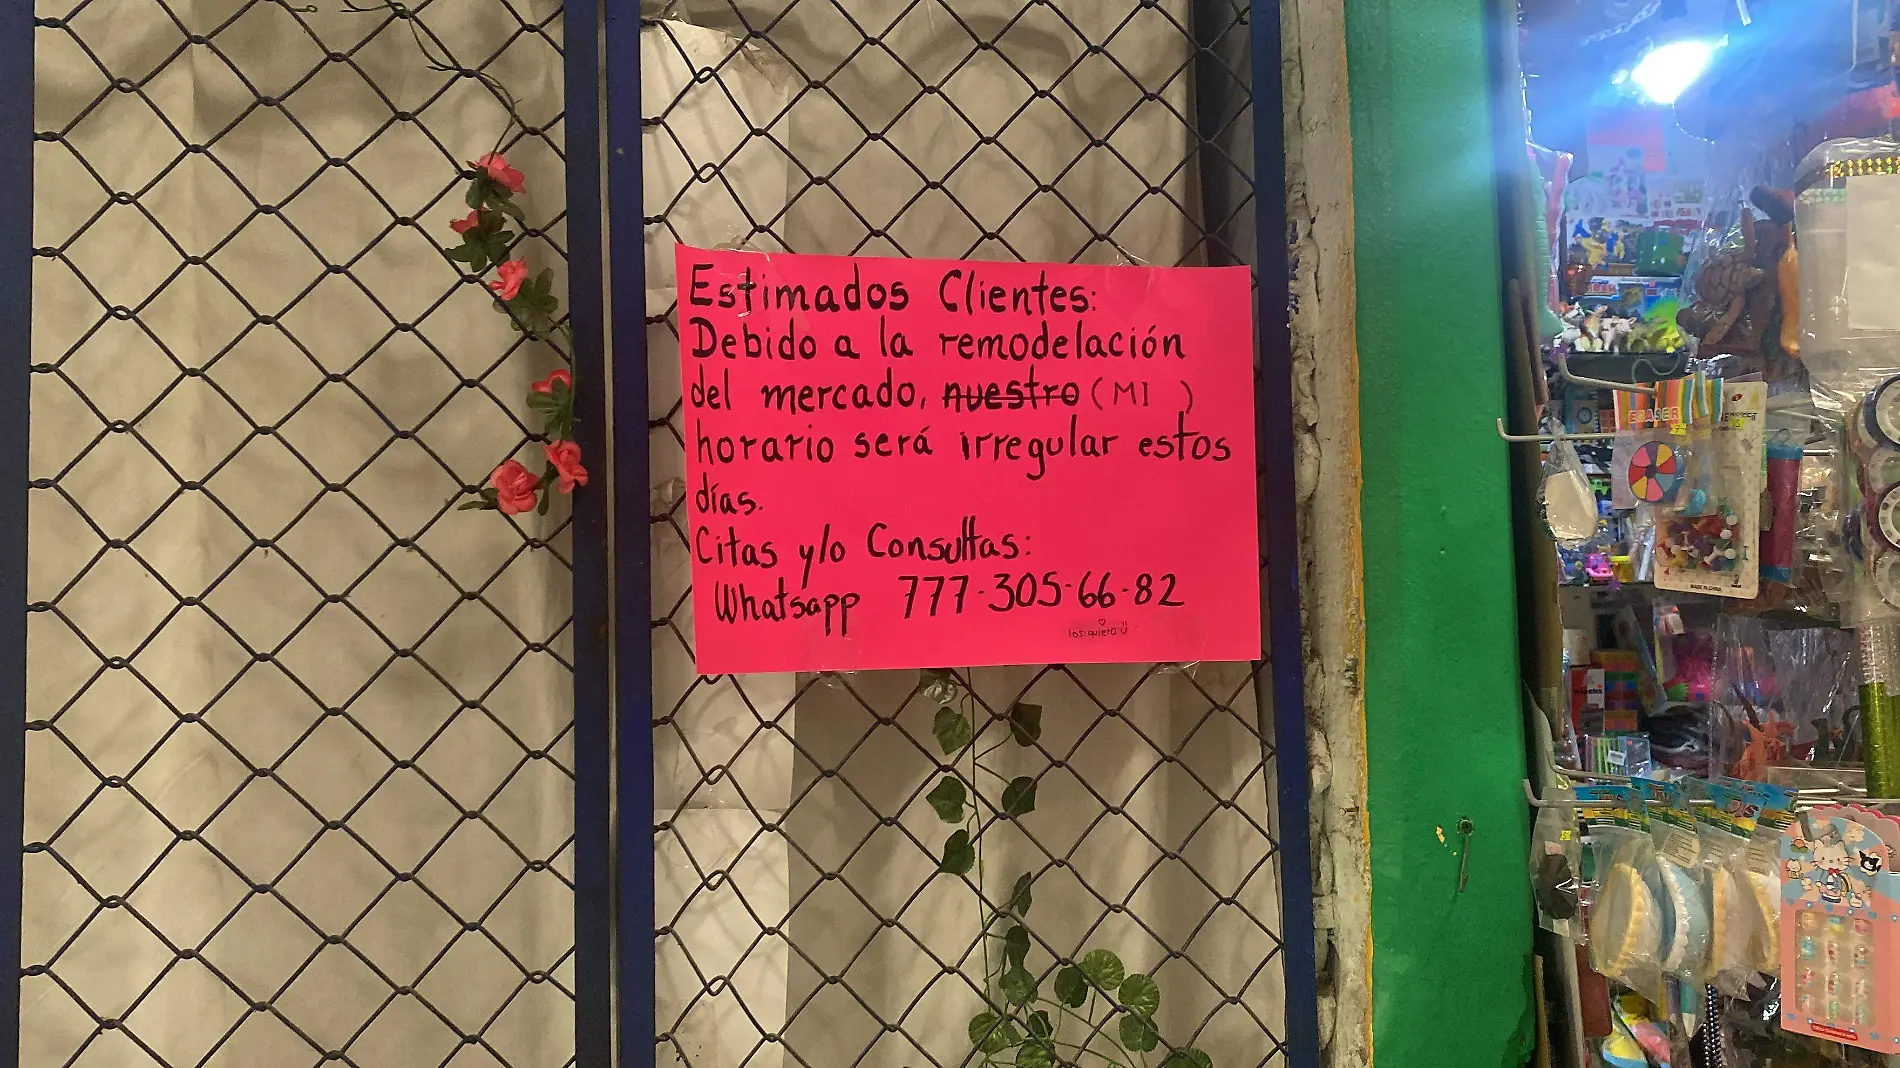 Estimados Clientes:
Debido a la remodelación
del mercado, ~~nuestro~~ (MI )
horario será irregular estos
días.
Citas y/o Consultas:
Whatsapp 777-305-66-82
los quiero
ERASER
MADE IN CHINA